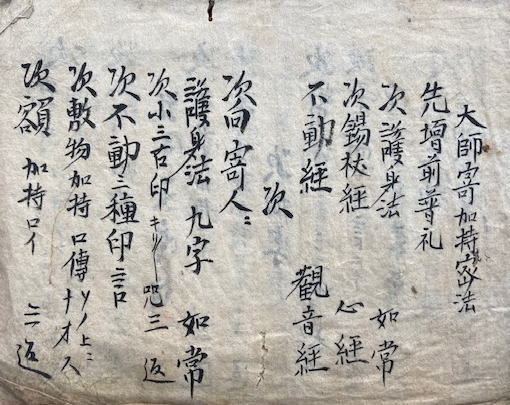 大師寄加持密法
先増前普礼
次護身法 如常
次錫杖経 心経
不動経 觀音経
次
次向寄人ニ
護身法 九字 如常
次小三古印 キリーク 咒三返
次不動三種印言
次敷物加持 口傳 ソノ上ニナオス
次額 加持 ロイ 三返